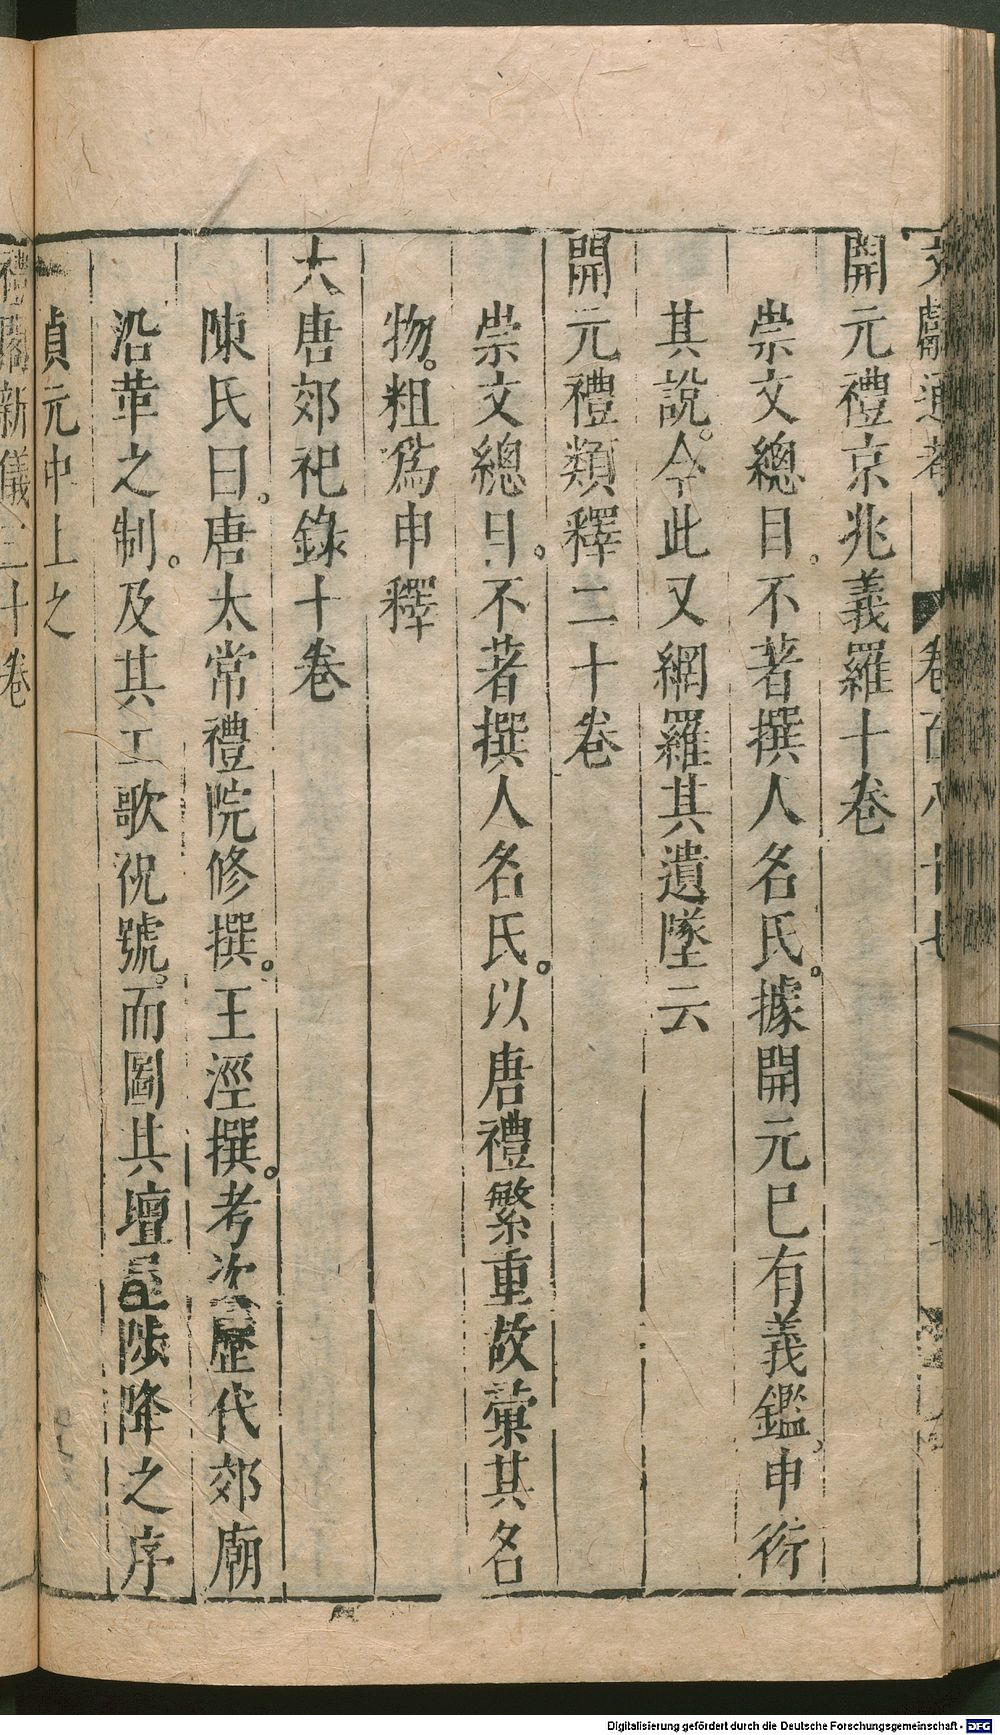 文獻通考 卷百八十七
開元禮京兆義羅十卷
崇文總目。不著撰人名氏。據開元已有義鑑,申衍
其說。今此又網羅其遺墜云
開元禮類釋二十卷
崇文總目。不著撰人名氏。以唐禮繁重故彙其名
物。粗爲申釋
大唐郊祀錄十卷
陳氏曰。唐太常禮院修撰。王涇撰。考次歷代郊廟
沿革之制。及其工歌祝號。而圖其壇屋陟降之序
貞元中上之
禮閣新儀三十卷
Digitalisierung gefördert durch die Deutsche Forschungsgemeinschaft - DFG